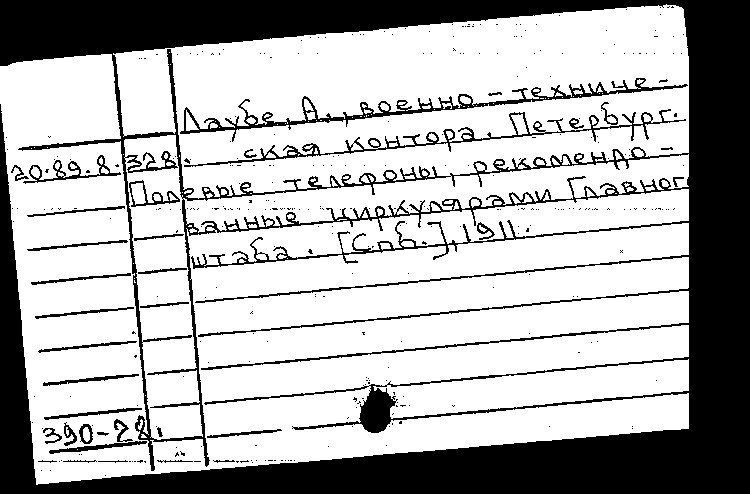 Лаубе, А., военно-техниче-
20.89.8.328. ская контора. Петербург.
Полевые телефоны, рекомендо-
ванные циркулярами Главного
штаба. [Спб.], 1911.
390-28.